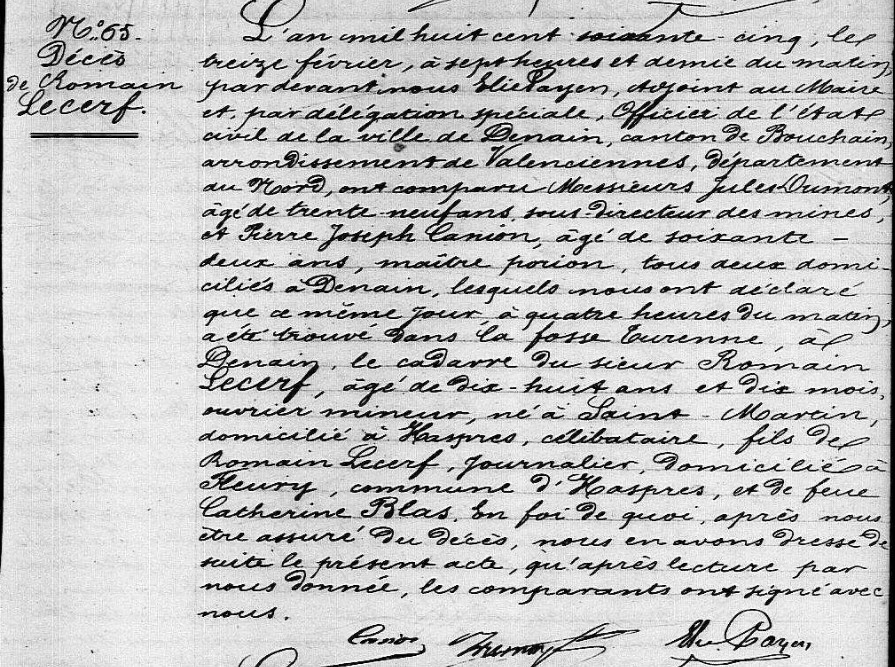 N.º 65.
Décès
de Romain
Lecerf.
L'an mil huit cent soixante-cinq, le
treize février, à sept heures et demie du matin,
par devant nous Elie Payen, Adjoint au Maire
et, par délégation spéciale, Officier de l'état
civil de la ville de Denain, canton de Bouchain,
arrondissement de Valenciennes, département
du Nord, ont comparu Messieurs Jules Dumont,
âgé de trente-neuf ans, sous-directeur des mines,
et Pierre Joseph Canion, âgé de soixante-
deux ans, maître porion, tous deux domi-
ciliés à Denain, lesquels nous ont déclaré
que ce même jour, à quatre heures du matin,
a été trouvé dans la fosse Turenne, à
Denain, le cadavre du sieur Romain
Lecerf, âgé de dix-huit ans et dix mois,
ouvrier mineur, né à Saint-Martin,
domicilié à Haspres, célibataire, fils de
Romain Lecerf, journalier, domicilié à
Fleury, commune d'Haspres, et de feue
Catherine Blas. En foi de quoi, après nous
être assuré du décès, nous en avons dressé de
suite le présent acte, qu'après lecture par
nous donnée, les comparants ont signé avec
nous.
Elie Payen